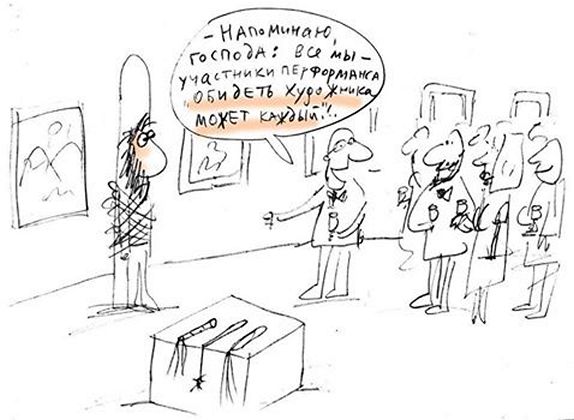 – Напоминаю,
господа: все мы –
участники перформанса
"Обидеть художника
может каждый"!..